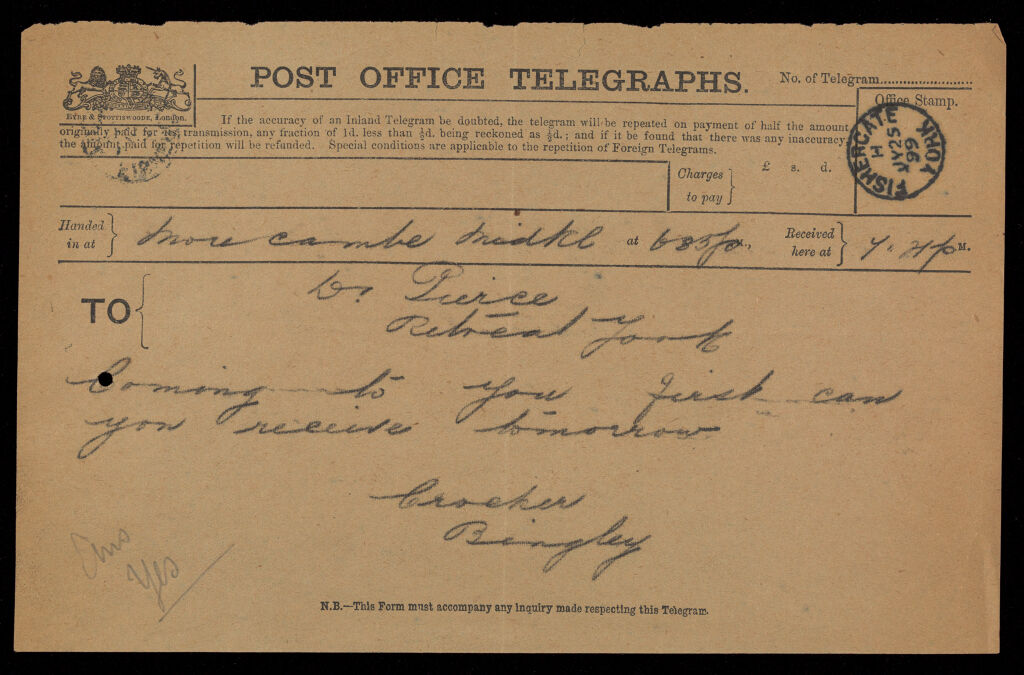 POST OFFICE TELEGRAPHS.
No. of Telegram
EYRE & SPOTTISWOODE, London.
Office Stamp.
If the accuracy of an Inland Telegram be doubted, the telegram will be repeated on payment of half the amount
originally paid for its transmission, any fraction of 1d. less than ½d. being reckoned as ½d.; and if it be found that there was any inaccuracy,
the amount paid for repetition will be refunded. Special conditions are applicable to the repetition of Foreign Telegrams.
FISHERGATE YORK
H
JY 25
99
Charges
to pay
£ s. d.
Handed
in at
Morecambe Midkl at 6 35 p M.,
Received
here at
7. 4 p M.
TO
Dr Pierce
Retreat York
Coming to you first can
you receive tomorrow
Crocker
Bingley
Ans
Yes
N.B.—This Form must accompany any inquiry made respecting this Telegram.